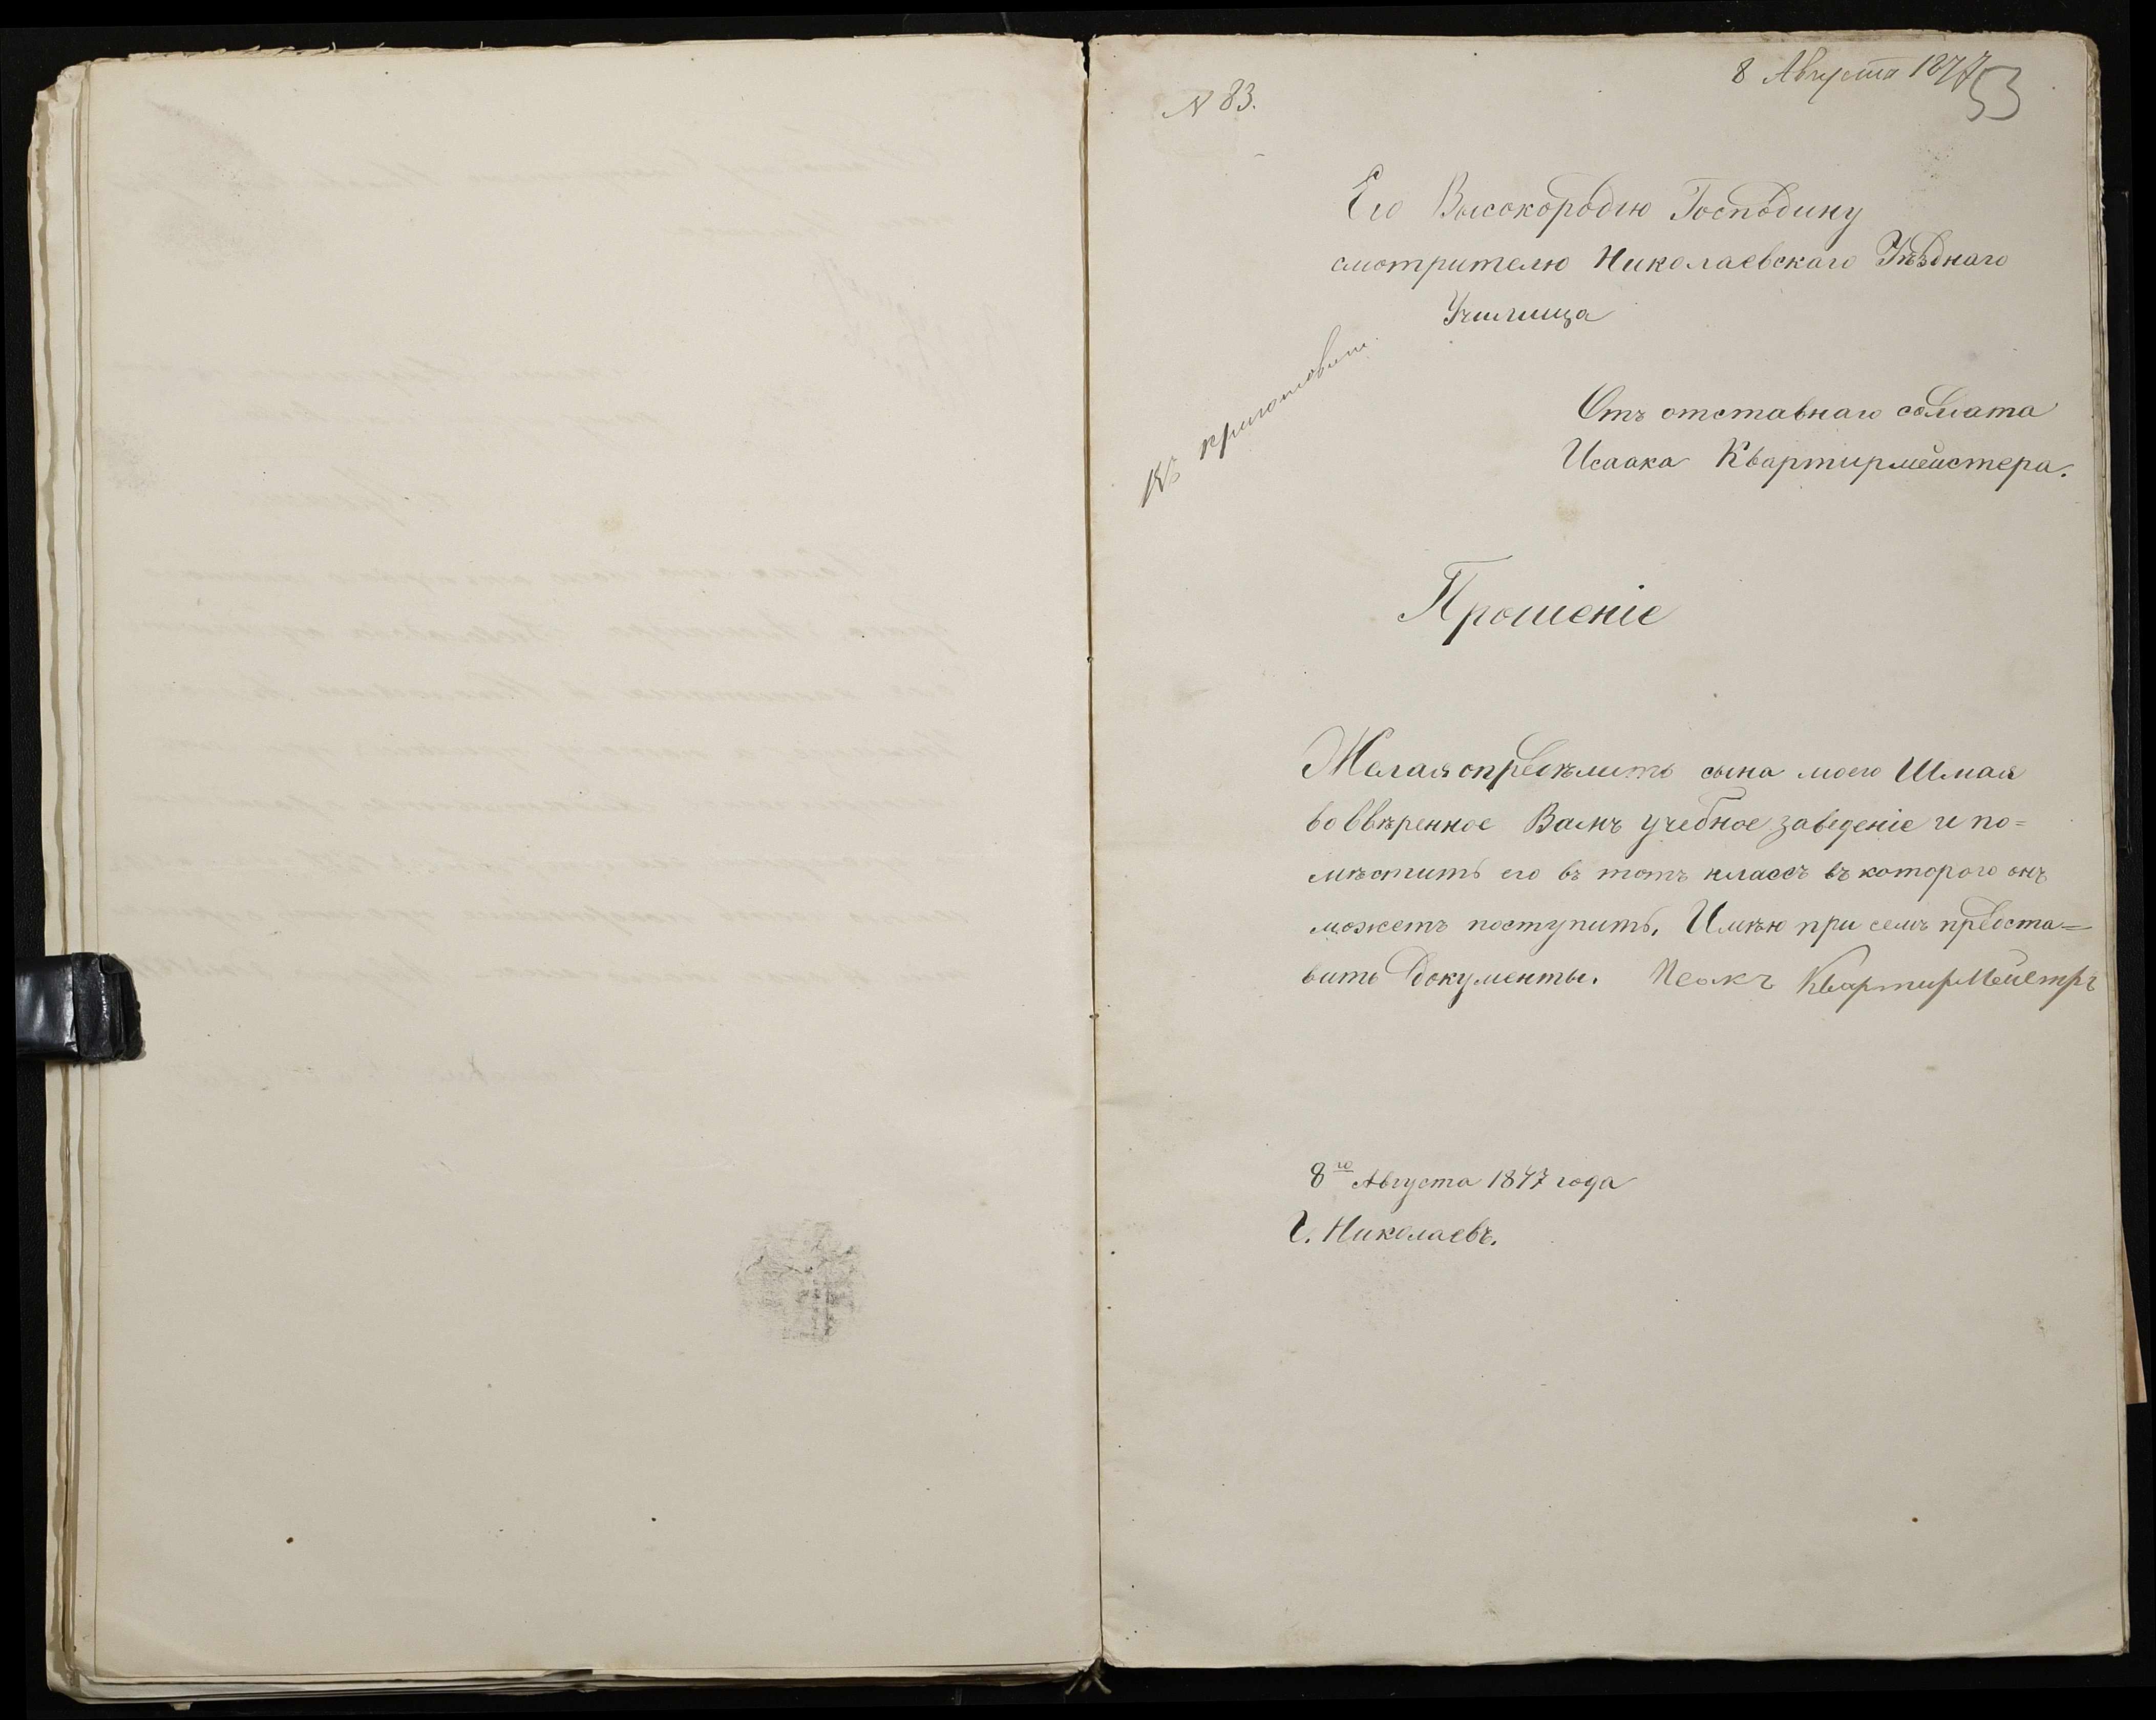 8 Августа 1877
53
N 83.
Его Высокородію Господину
смотрителю Николаевскаго Уѣзднаго
Училища
Въ приготовит.
Отъ отставнаго солдата
Исаака Квартирмейстера.
Прошеніе
Желая опредѣлить сына моего Шмая
во ввѣренное Вамъ учебное заведеніе и по=
мѣстить его въ тотъ классъ въ которого онъ
можетъ поступить. Имѣю при семъ предста=
вить документы. Исакъ КвартирМейстръ
8го Августа 1877 года
Г. Николаевъ.